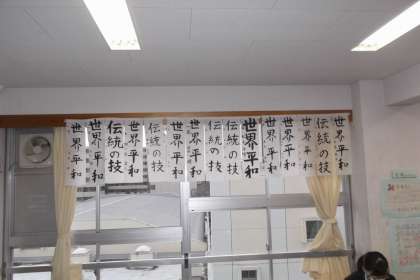 世界平和
世界平和
伝統の技
世界平和
伝統の技
世界平和
世界平和
伝統の技
伝統の技
世界平和
世界平和
世界平和
世界平和
伝統の技
世界平和